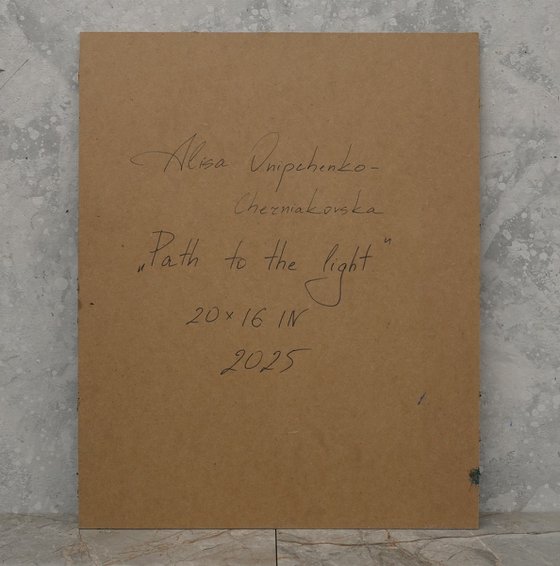 Alisa Onipchenko-
Cherniakovska
„Path to the light"
20 x 16 IN
2025